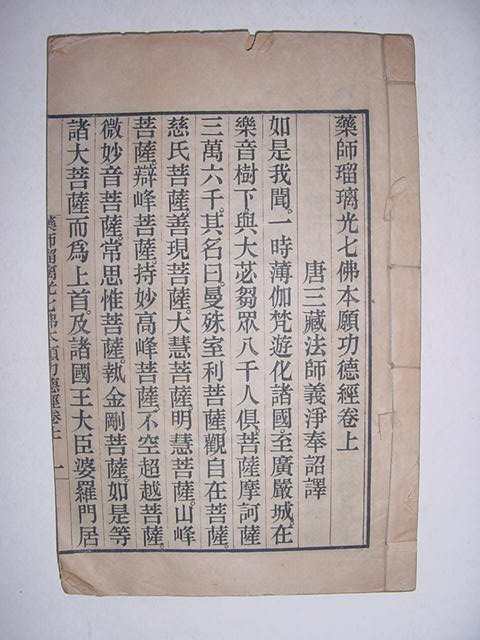 藥師瑠璃光七佛本願功德經卷上
唐三藏法師義淨奉詔譯
如是我聞。一時薄伽梵遊化諸國。至廣嚴城。在
樂音樹下。與大苾芻眾八千人俱。菩薩摩訶薩
三萬六千。其名曰。曼殊室利菩薩。觀自在菩薩。
慈氏菩薩。善現菩薩。大慧菩薩。明慧菩薩。山峰
菩薩。辯峰菩薩。持妙高峰菩薩。不空超越菩薩。
微妙音菩薩。常思惟菩薩。執金剛菩薩。如是等
諸大菩薩。而為上首。及諸國王大臣婆羅門居
藥師瑠璃光七佛本願功德經卷上 一